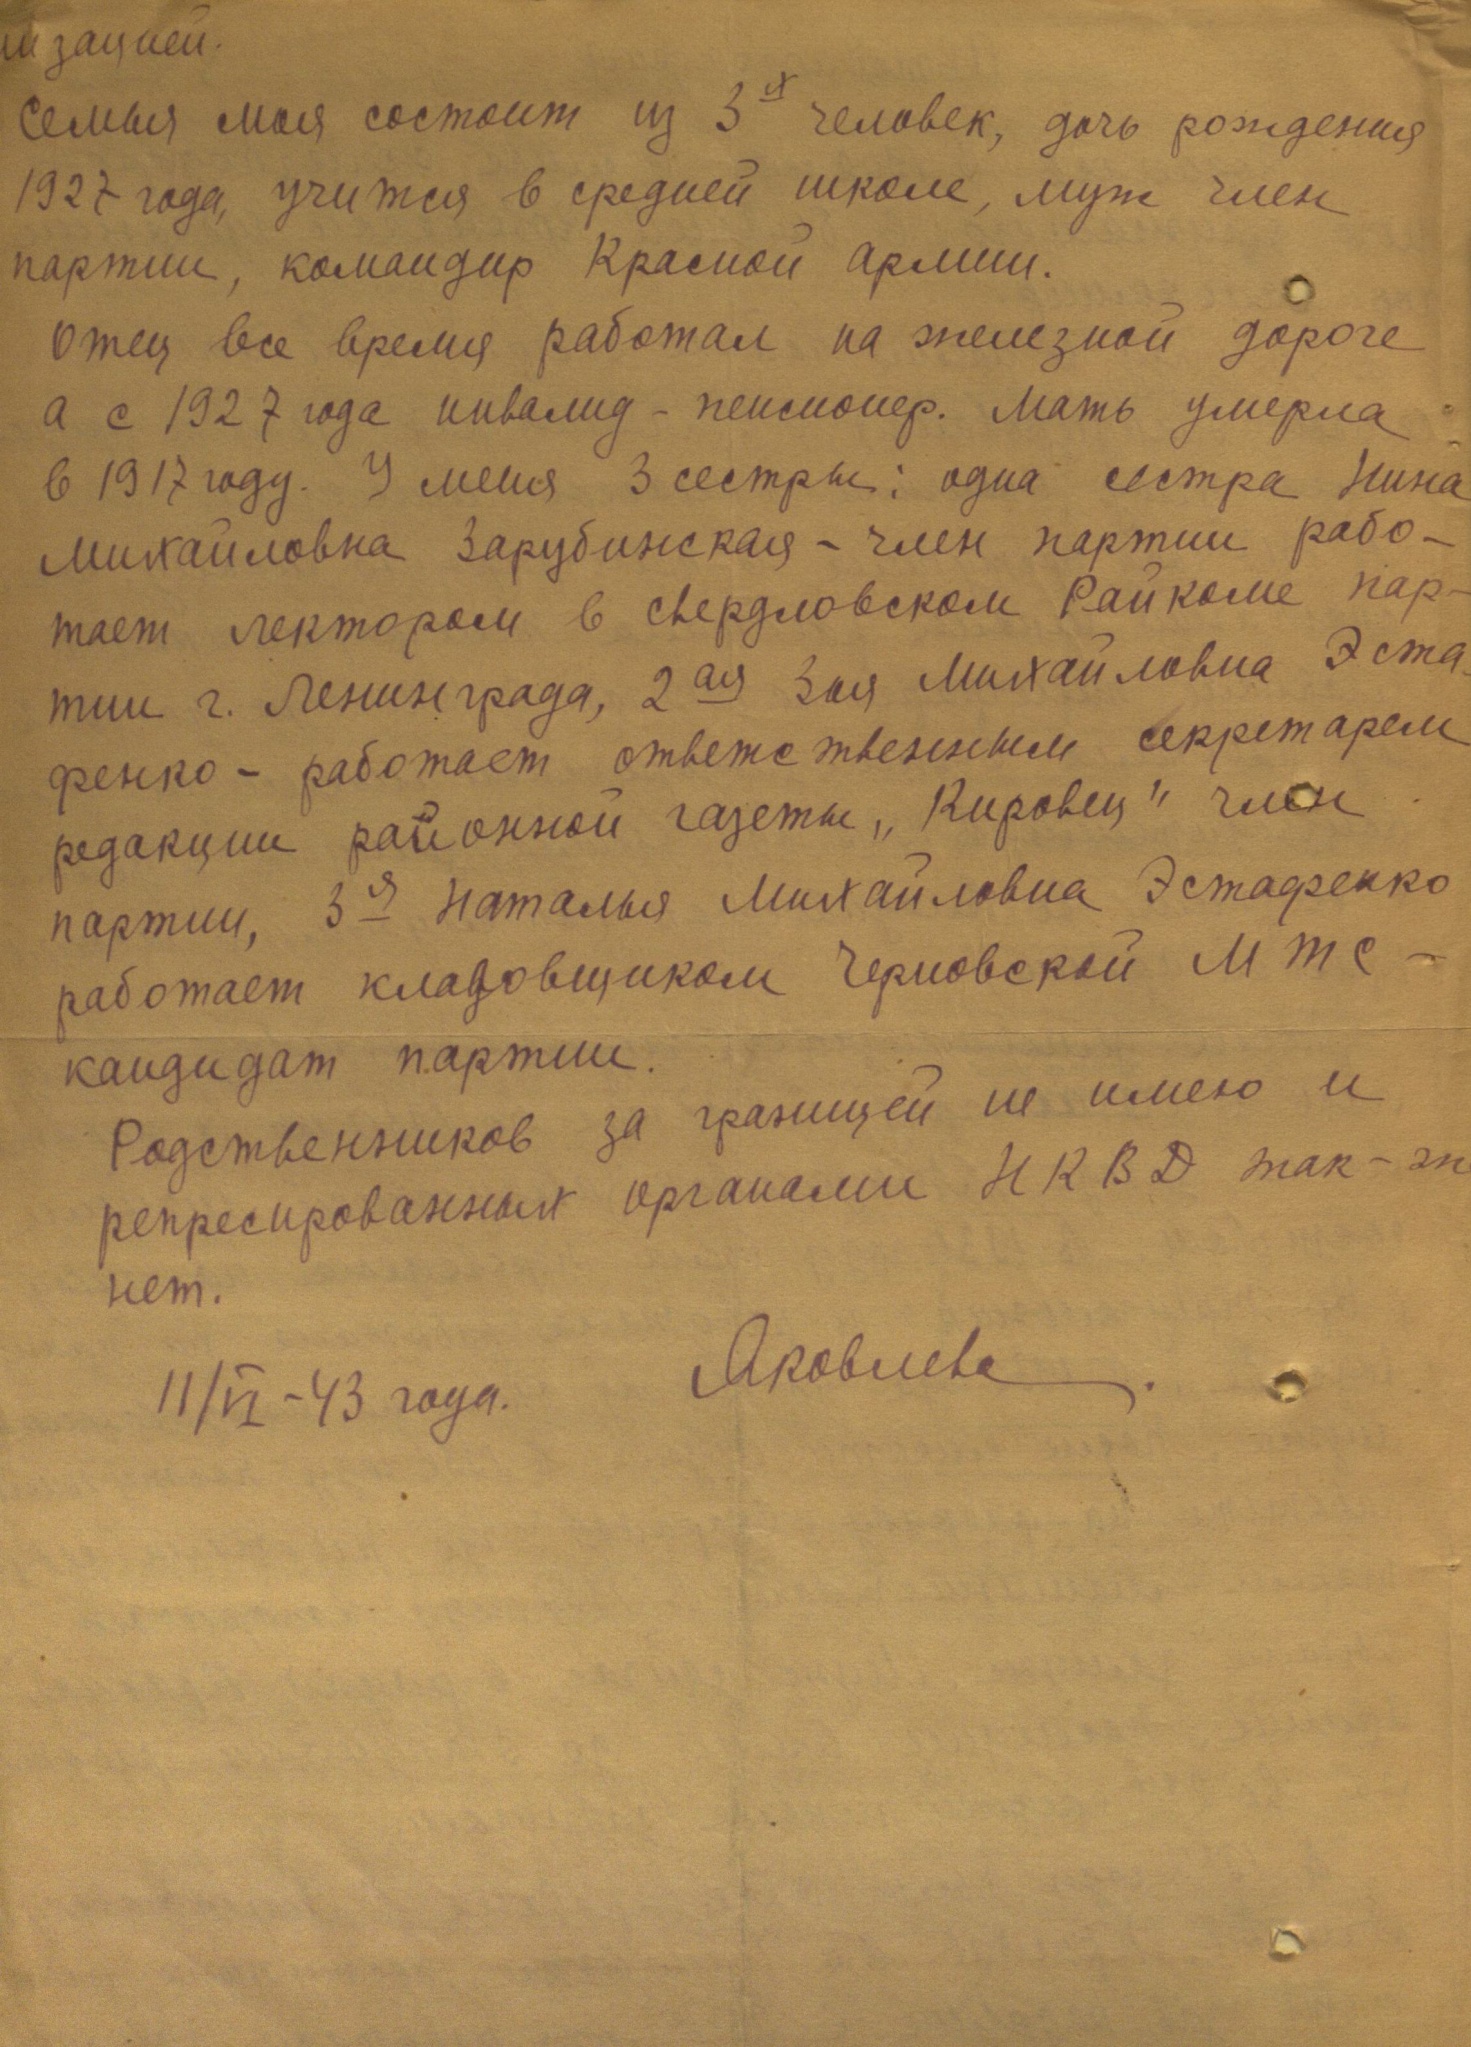 изацией.
Семья моя состоит из 3х человек, дочь рождения
1927 года, учится в средней школе, муж член
партии, командир Красной армии.
Отец все время работал на железной дороге
а с 1927 года инвалид - пенсионер. Мать умерла
в 1917 году. У меня 3 сестры: одна сестра Нина
Михайловна Зарубинская - член партии рабо-
тает лектором в свердловском Райкоме пар-
тии г. Ленинграда, 2ая Зоя Михайловна Эста-
фенко - работает ответственным секретарем
редакции районной газеты „Кировец" член
партии, 3я Наталья Михайловна Эстафенко
работает кладовщиком Черновской МТС -
кандидат партии.
Родственников за границей не имею и
репресированных органами НКВД так-ж
нет.
11/VI-43 года. Яковлева.